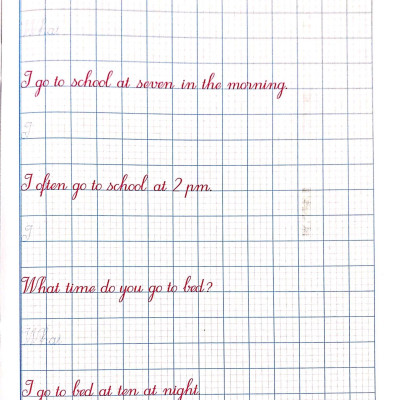 What
I go to school at seven in the morning.
I
I often go to school at 2 pm.
I
What time do you go to bed?
What
I go to bed at ten at night.